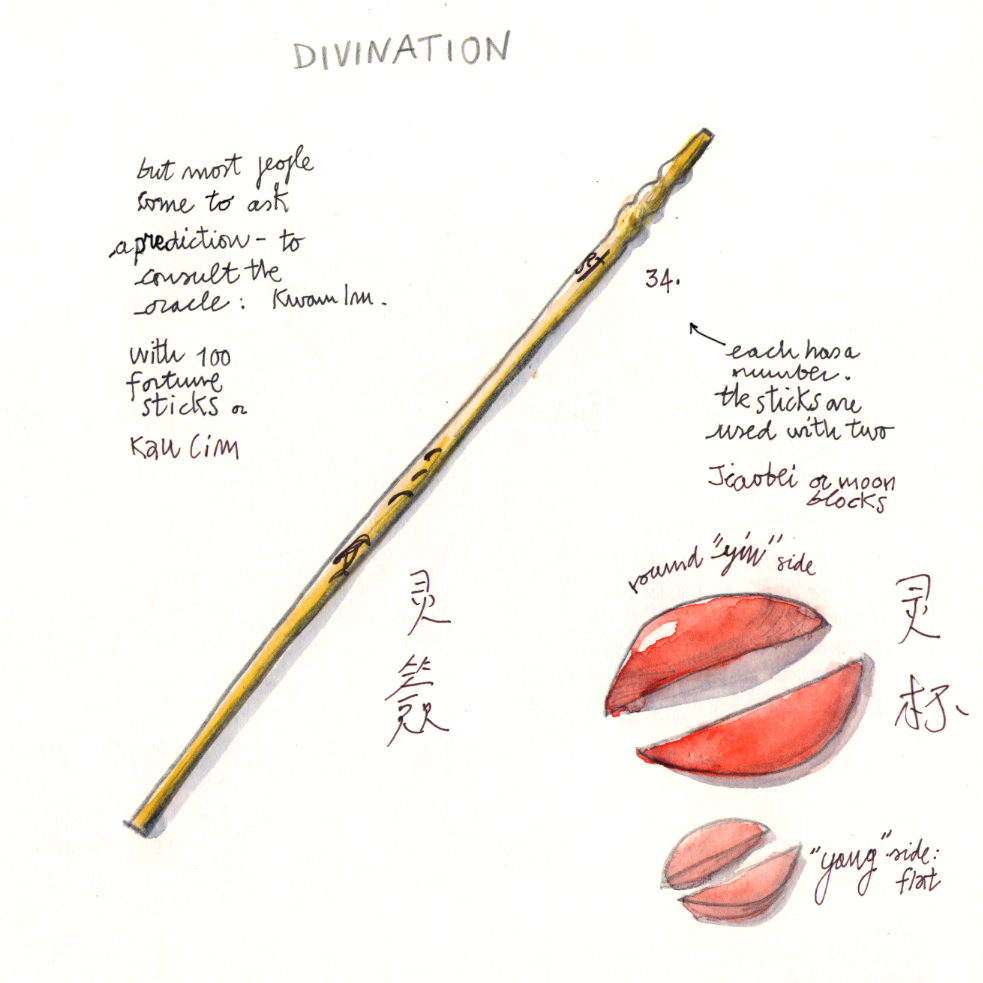 DIVINATION
but most people
come to ask
a prediction - to
consult the
oracle: Kwam Im.
with 100
fortune
sticks or
Kau Cim
34.
each has a
number.
the sticks are
used with two
Jiaobei or moon
blocks
round "yin" side
灵
灵
杯
"yang" side:
flat